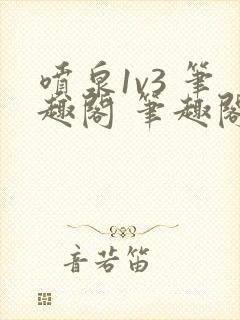 噴泉1v3 筆
趣閣 筆趣閣
音若笛